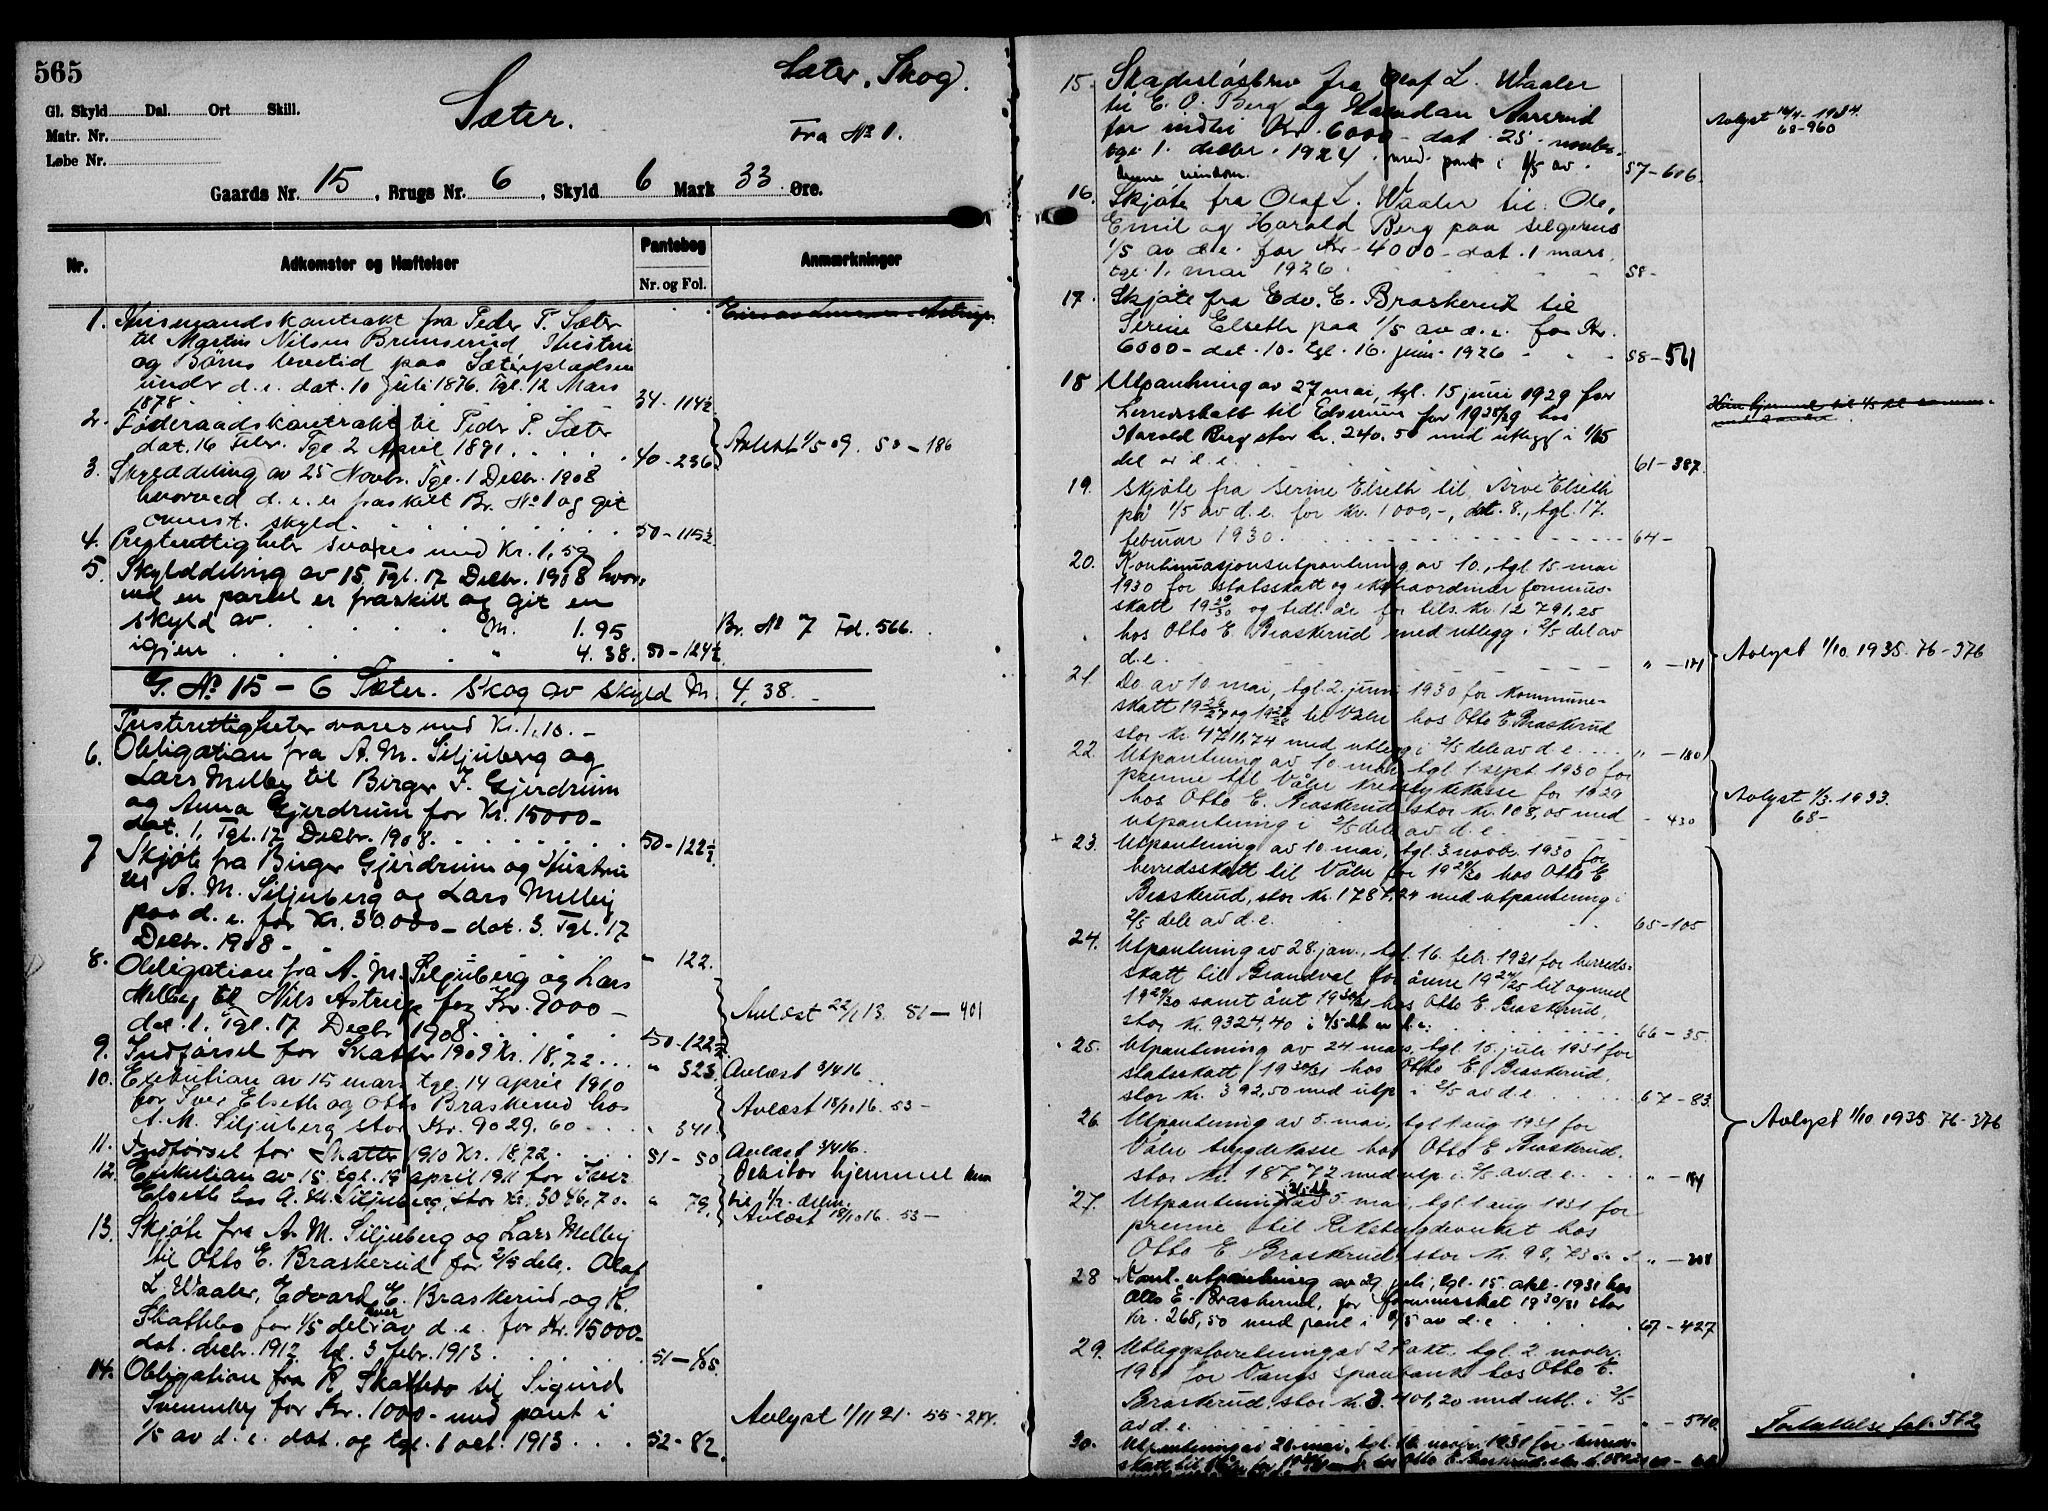 565
Sæter.
Sæter, Skog.
Fra No 1.
Gl. Skyld Dal. Ort Skill.
Matr. Nr.
Løbe Nr.
Gaards Nr. 15, Brugs Nr. 6, Skyld 6 Mark 33 Øre.
Nr. Adkomster og Hæftelser Pantebog Nr. og Fol. Anmærkninger
1. Husmandskontrakt fra Peder P. Sæter
til Martin Nilsen Brunserud, Hustru
og Børns levetid paa Sæterpladsen
under d. e. dat. 10 Juli 1876. Tgl. 12 Mars
1878 . . . 34-114½
2. Føderaadskontrakt til Peder P. Sæter
dat. 16 Febr. Tgl. 2 April 1891. . . . 40-236 Avlæst 1/5 09. 50-186
3. Skylddeling av 25 Novbr. Tgl. 1 Decbr. 1908
hvorved d. e. er fraskilt Br. No 1 og git
ovenst. skyld. . . . 50-115½
4. Presterettigheter svares med Kr. 1,59
5. Skylddeling av 15 Tgl. 17 Decbr. 1908 hvor-
ved en parsel er fraskilt og git en
skyld av . . . M. 1.95 Br. No 7 Fol. 566.
igjen . . . " 4.38. 50-124½
G. No 15-6 Sæter. Skog av skyld M. 4,38.-
Presterettigheter svares med Kr. 1,10.-
6. Obligation fra A. M. Siljuberg og
Lars Melby til Birger J. Gjerdrum
og Anna Gjerdrum for Kr. 15000-
dat. 1, Tgl. 17 Decbr. 1908. . . . 50-122½
7 Skjøte fra Birger Gjerdrum og Hustru
til A. M. Siljuberg og Lars Melby
paa d. e. for Kr. 30.000- dat. 3. Tgl. 17
Decbr. 1908- " 122.
8. Obligation fra A. M. Siljuberg og Lars
Melby til Nils Astrup for Kr. 9000- Avlæst 22/1 13. 51-401
dat. 1. Tgl. 17 Decbr 1908. . . . 50-122½
9. Indførsel for Skatter 1909 Kr. 18,72 . . . " 323. Avlæst 3/4 16
10. Exekution av 15 mars tgl. 14 april 1910
for Iver Elseth og Otto Braskerud hos Avlæst 18/10 16. 53-
A. M. Siljuberg stor Kr. 9029,60 . . . " 341
11. Indførsel for Skatter 1910 Kr. 18,72 . . . 51-50 Avlæst 3/4 16
12. Exekution av 15. tgl. 19 april 1911 for Iver Debitor hjemmel kun
Elseth hos A. M. Siljuberg, stor Kr. 3046,70.- " 79. til 1/2 delen
Avlæst 18/10 16. 53-
13. Skjøte fra A. M. Siljuberg og Lars Melby
til Otto E. Braskerud for 2/5 dele, Olaf
L. Waaler, Edvard E. Braskerud og K.
Skattebo for 1/5 del hver av d. e. for Kr. 15000-
dat. decbr. 1912 tgl. 3 febr. 1913 . . . 51-
14. Obligation fra K. Skattebo til Sigurd
Svenneby for Kr. 1000- med pant i Avlyst 1/11 21. 55-244.
1/5 av d. e. dat. og tgl. 1 oct. 1913 . . . 52-82.
15. Skadesløsbrev fra Olaf L. Waaler
til E. O. Berg og Halvdan Aaserud Avlyst 14/4-1934.
for indtil Kr. 6000- dat. 25. novbr. 68-960
tgl. 1. decbr. 1924. med pant i 1/5 av
denne eiendom. 57-606.
16. Skjøte fra Olaf L. Waaler til Ole,
Emil og Harald Berg paa selgerens
1/5 av d. e. for Kr. 4000- dat. 1 mars,
tgl. 1. mai 1926. . . . 58-
17. Skjøte fra Edv. E. Braskerud til
Serine Elseth paa 1/5 av d. e. for Kr.
6000- dat. 10. tgl. 16. juni 1926 - . . . 58-511
18 Utpantning av 27 mai, tgl. 15 juni 1929 for
herredsskatt til Elverum for 1928/29 hos
Harald Berg stor kr. 240.50 med utlegg i 1/15
del av d. e. . . . 61-387.
19. Skjøte fra Serine Elseth til Arve Elseth
på 1/5 av d. e. for kr. 1000,-, dat. 8., tgl. 17.
februar 1930. . . . 64-
20. Kontinuasjonsutpantning av 10., tgl. 15 mai
1930 for statsskatt og ekstraordinær formues-
skatt 1929/30 og tidl. år for tils. kr 12 791.25
hos Otto E. Braskerud med utlegg i 2/5 del av
d. e. . . . " -171 Avlyst 1/10 1935. 76-376
21. Do av 10 mai, tgl. 2. juni 1930 for kommune-
skatt 1926/27 og 1927/28 til Våler hos Otto E. Braskerud
stor kr. 4711,74 med utlegg i 2/5 dele av d. e. . . . " -180
22. Utpantning av 10 mai, tgl. 1 sept. 1930 for
premie til Våler kretssykekasse for 1929 Avlyst 1/3 1933.
hos Otto E. Braskerud, stor kr. 108,05 med 68-
utpantning i 2/5 dele av d. e. - 430
23. Utpantning av 10 mai, tgl. 3 novbr. 1930 for
herredsskatt til Våler for 1929/30 hos Otto E.
Braskerud, stor kr. 1787,24 med utpantning i
2/5 dele av d. e. 65-105
24. Utpantning av 28. jan., tgl. 16. febr. 1931 for herreds-
skatt til Brandval for årene 1924/25 til og med
1929/30 samt året 1930/31 hos Otto E. Braskerud,
stor kr. 9324,40 i 2/5 del av d. e. . . . 66-35.
25. Utpantning av 24 mars, tgl. 15. juli 1931 for
statsskatt 1930/31 hos Otto E. Braskerud,
stor kr. 392,50 med utp. i 2/5 av d. e. . . . 67-83.
26. Utpantning av 5. mai, tgl. 1 aug. 1931 for Avlyst 1/10 1935 76-376
Våler trygdekasse hos Otto E Braskerud,
stor kr. 187,72 med utp. i 2/5 av d. e. . . . " -
27. Utpantning av 5 mai, tgl. 1 aug 1931 for
premie til Rikstrygdeverket hos
Otto E. Braskerud, stor kr. 98,73 . . . " -201
28 Kont. utpantning av 29 juli, tgl. 15. okt. 1931 hos
Otto E. Braskerud, for formuesskat 1930/31 stor
kr. 268,50 med pant i 2/5 av d. e. . . . 67-427
29. Utleggsforretning av 2 okt., tgl. 2. novbr.
1931 for Vangs sparebank hos Otto E.
Braskerud, stor kr. 3.401,20 med utl. i 2/5
av d. e. . . . " -540.
Fortsættelse fol. 572
30. Utpantning av 20. mai, tgl. 16. novbr. 1931 for herreds-